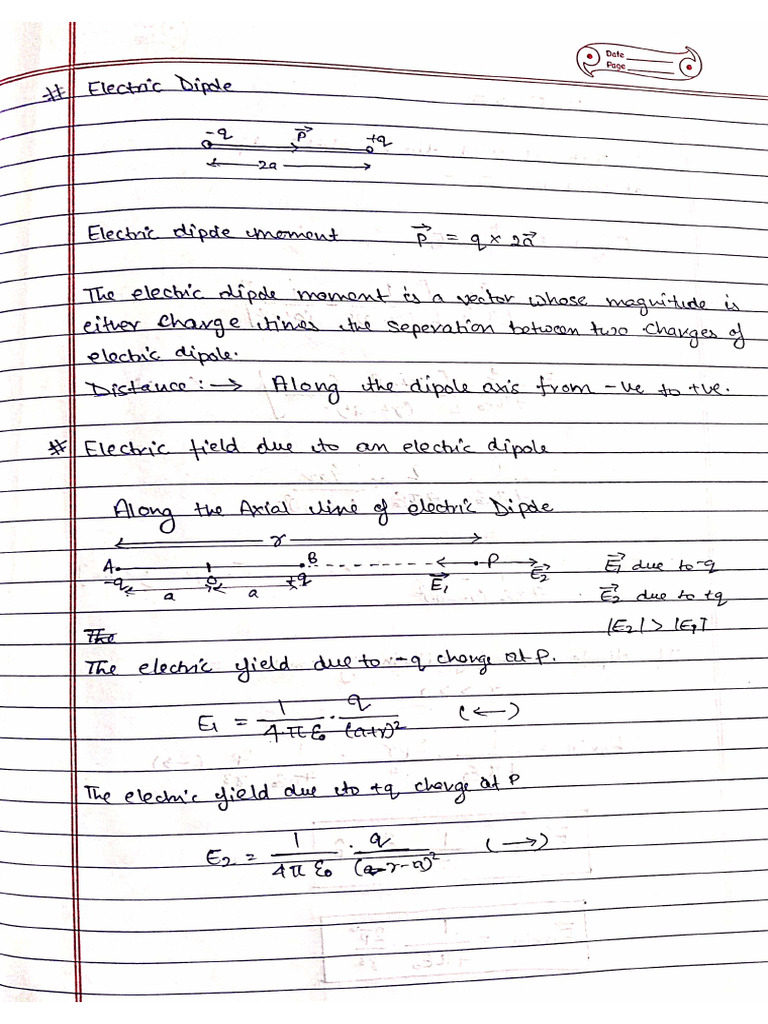 Date
Page
# Electric Dipole
-q P⃗ +q
2a
Electric dipole moment P⃗ = q × 2a⃗
The electric dipole moment is a vector whose magnitude is
either charge times the seperation between two charges of
electric dipole.
Distance :→ Along the dipole axis from -ve to +ve.
# Electric field due to an electric dipole
Along the Axial line of electric Dipole
r
A B P E⃗1 due to -q
-q O +q E⃗1 E⃗2
a a E⃗2 due to +q
|E2| > |E1|
The electric yield due to -q charge at P.
E1 = 1/4πε0 · q/(a+r)² (←)
The electric yield due to +q charge at P
E2 = 1/4πε0 · q/(r-a)² (→)